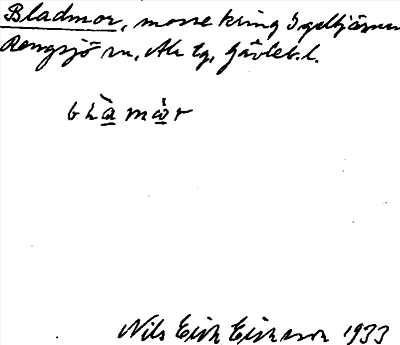 Bladmor, mosse kring Igeltjärnen
Rengsjö sn, Ala tg, Gävleb. l.
blàmòr
Nils Erik Eriksson 1933